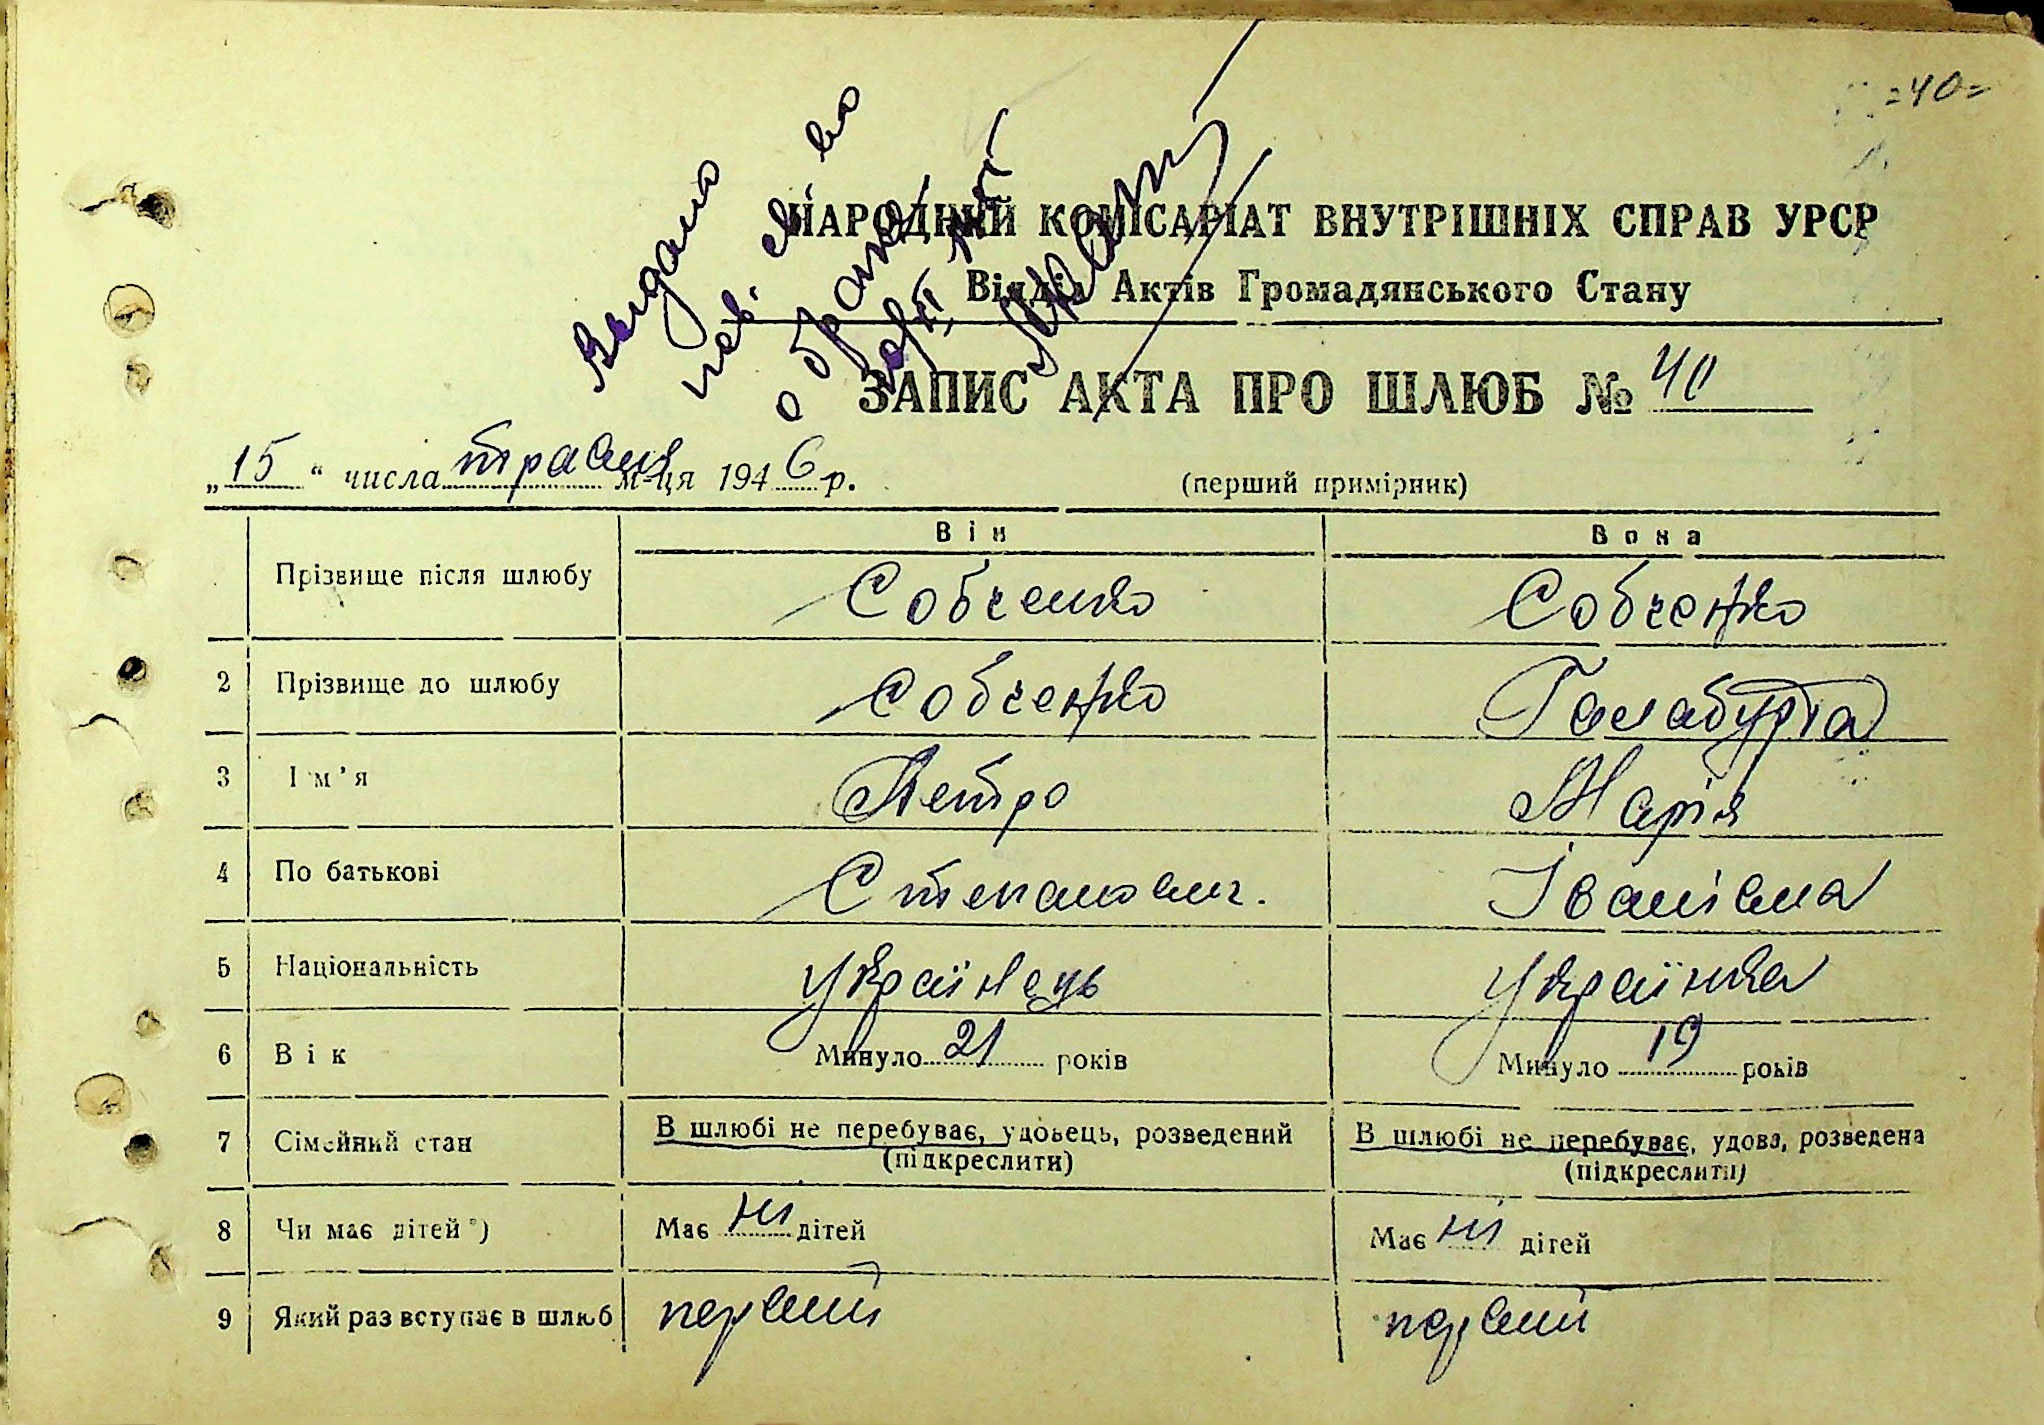 =40=
Видано
пов. св во
о брака
НАРОДНИЙ КОМІСАРІАТ ВНУТРІШНІХ СПРАВ УРСР
Відділ Актів Громадянського Стану
ЗАПИС АКТА ПРО ШЛЮБ № 40
„15“ числа травня м-ця 1946 р. (перший примірник)
Він Вона
Прізвище після шлюбу Собченко Собченко
2 Прізвище до шлюбу Собченко Галабурда
3 Ім'я Петро Марія
4 По батькові Степанович. Іванівна
5 Національність Українець Українка
6 Вік Минуло 21 років Минуло 19 років
7 Сімейний стан В шлюбі не перебуває, удовець, розведений В шлюбі не перебуває, удова, розведена
(підкреслити) (підкреслити)
8 Чи має дітей*) Має ні дітей Має ні дітей
9 Який раз вступає в шлюб первий первий